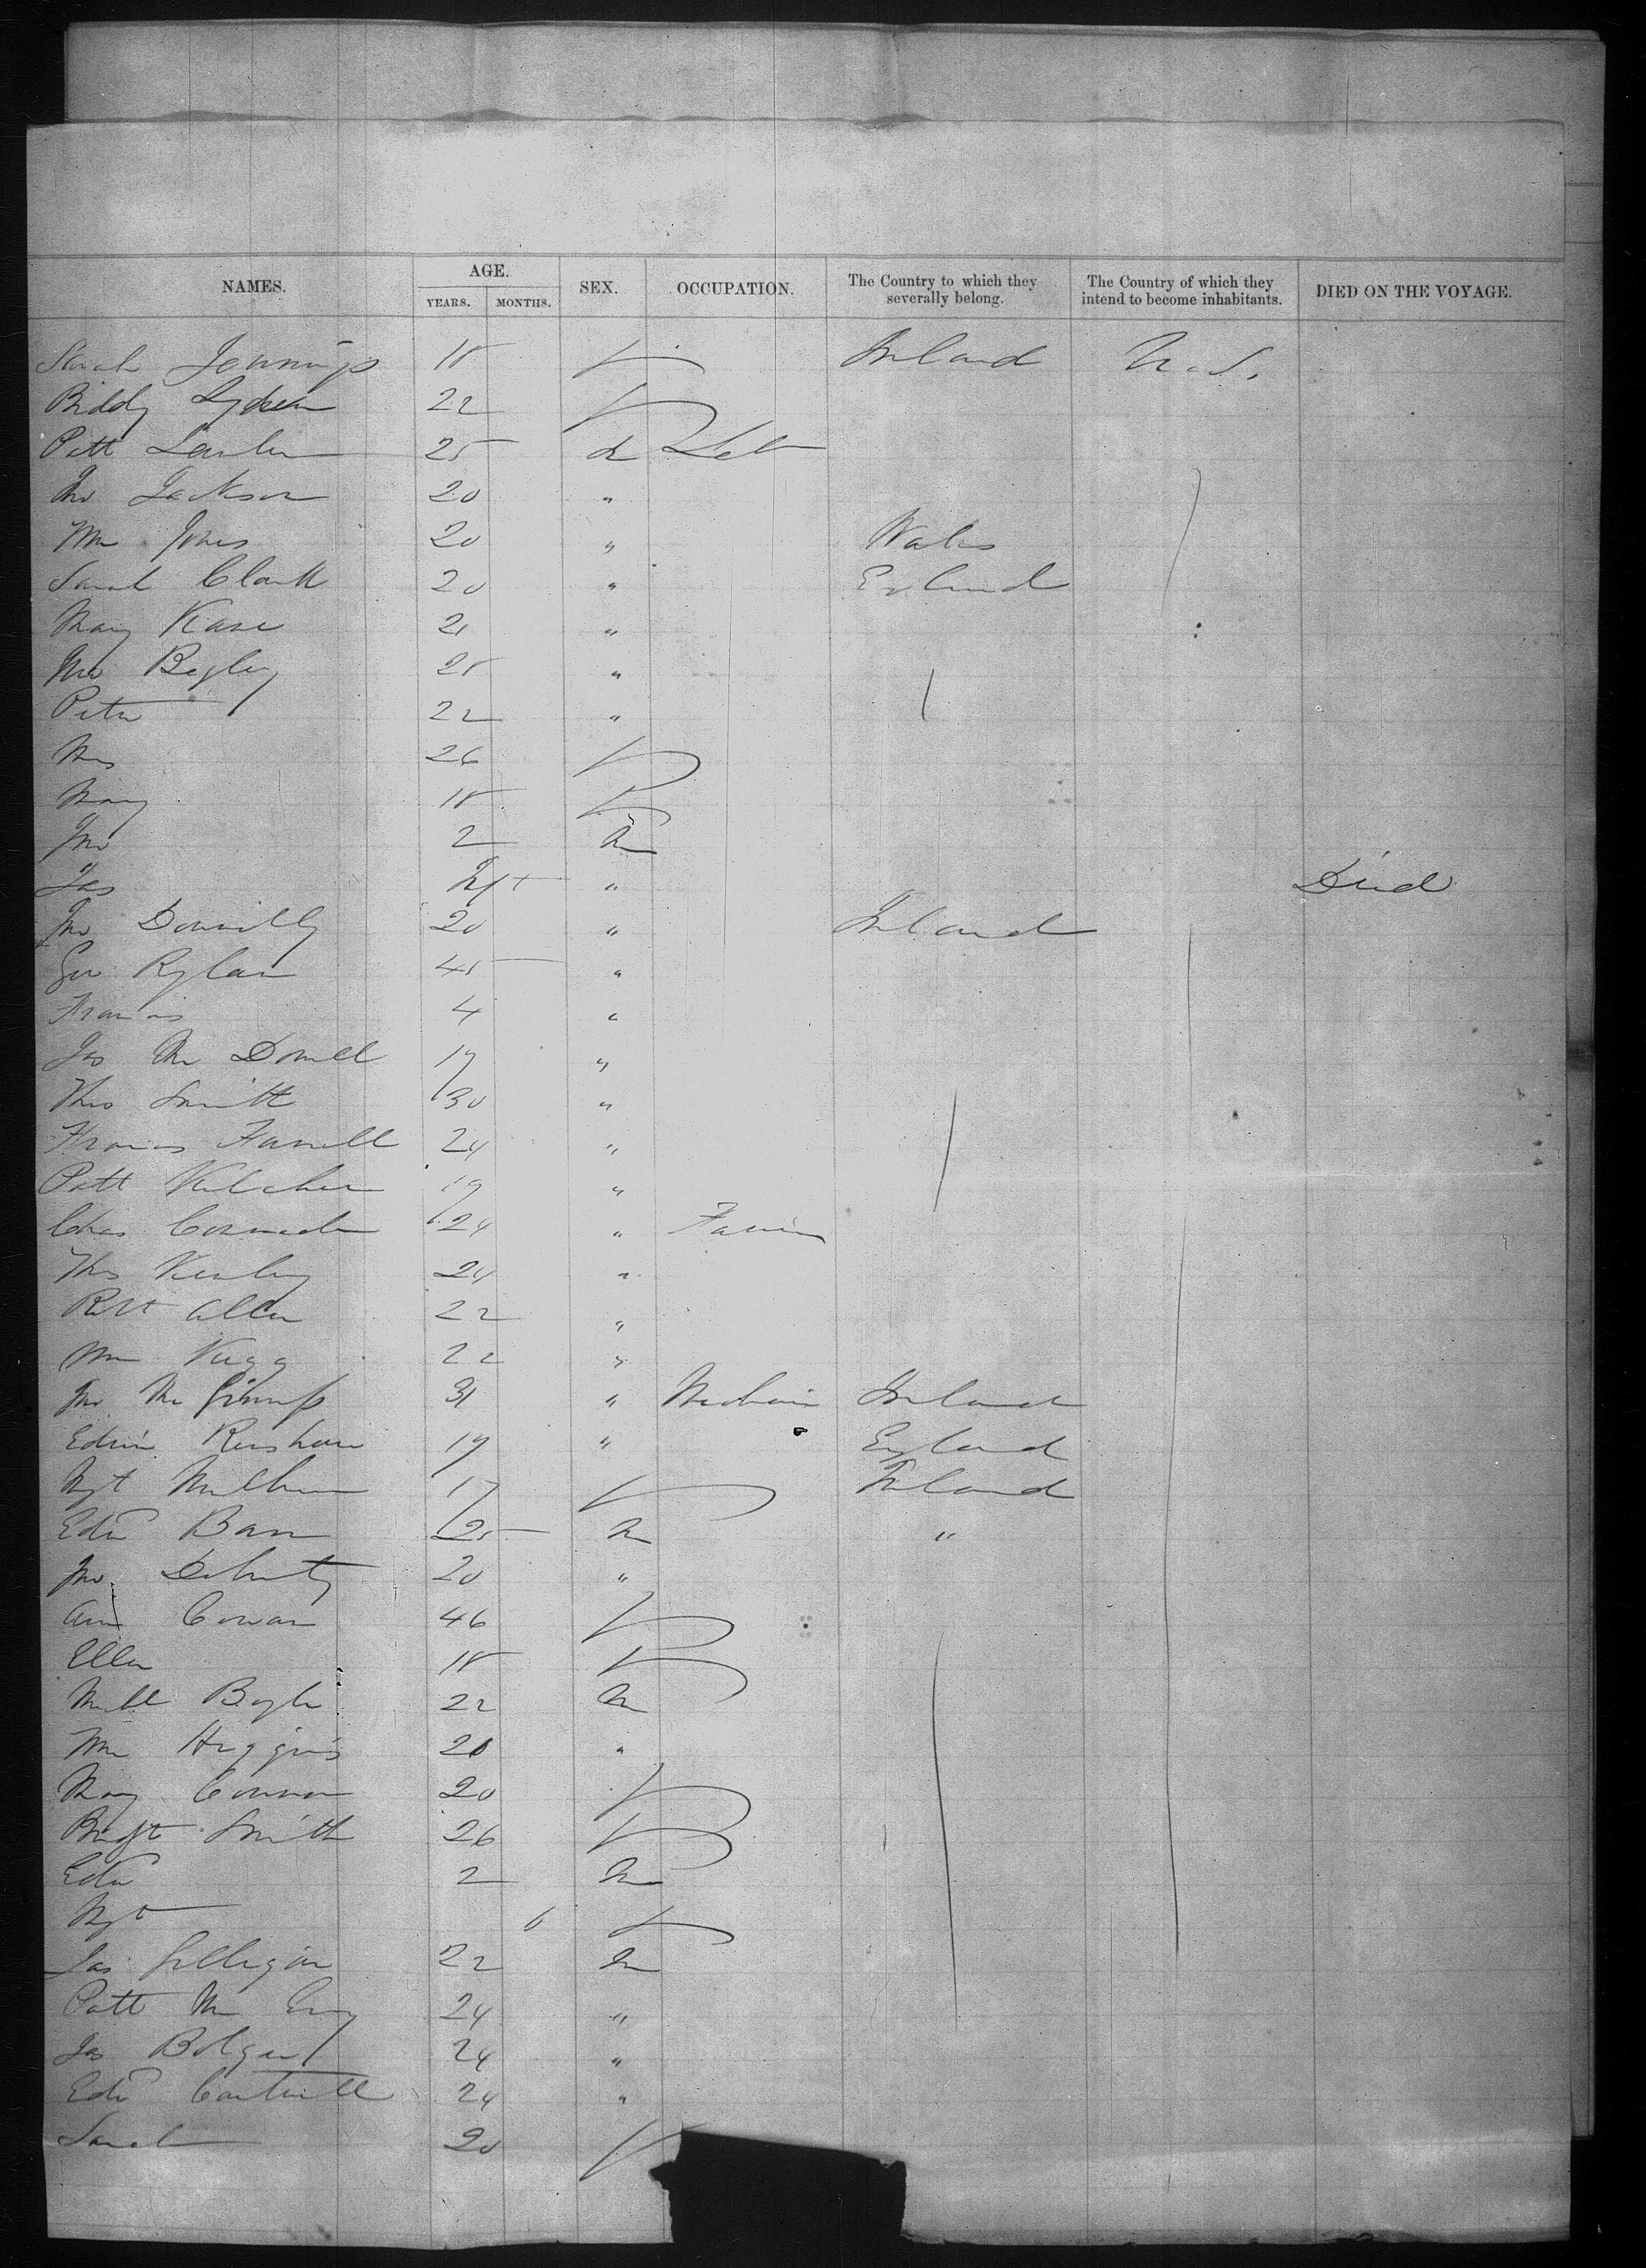 NAMES. AGE. YEARS. MONTHS. SEX. OCCUPATION. The Country to which they severally belong. The Country of which they intend to become inhabitants. DIED ON THE VOYAGE.
Sarah Jennings 18 Ireland U.S.
Biddy Lyden 22
Patt 25 Lab
Jno Jackson 20 "
Wm Jones 20 " Wales
Sarah Clark 20 " England
Mary Kane 21 "
Jno Begley 25 "
Peter 22 "
26
Mary 18
Jno 2 m
Jas " Died
Jno Donnelly 20 " Ireland
Geo Rylan 45 "
Francis 4 "
Jas Mc Donell 19 "
Thos Smith 30 "
Francis Farrell 24 "
Patt 19 "
Chas 24 " Farmer
Thos 24 "
Robt Allen 22 "
Wm 22 "
Jno Mc Ginness 31 " Mechanic Ireland
Edwin Kershaw 19 " England
Mgt 17 Ireland
Edwd Barr 25 m "
Jno Doherty 20 "
Ann Cowan 46
Ellen 18
Michl Boyle 22 m
Wm Higgins 20 "
Mary Connor 20
Bridgt Smith 26
Edwd 2 m
Mgt 6
Jas Gilligan 22 m
Patt Mc 24 "
Jas Bolger 24 "
Edwd Cantwell 24 "
Sarah 20